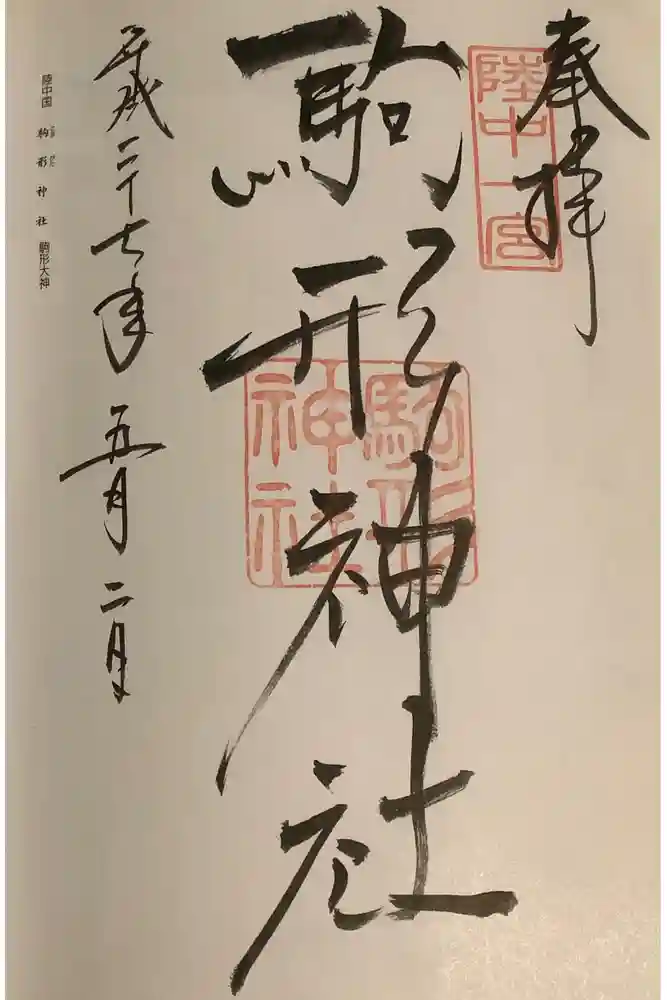 奉拝
陸中一宮
駒形神社
駒形神社
平成二十七年五月二日
陸中国 駒形神社 駒形大神